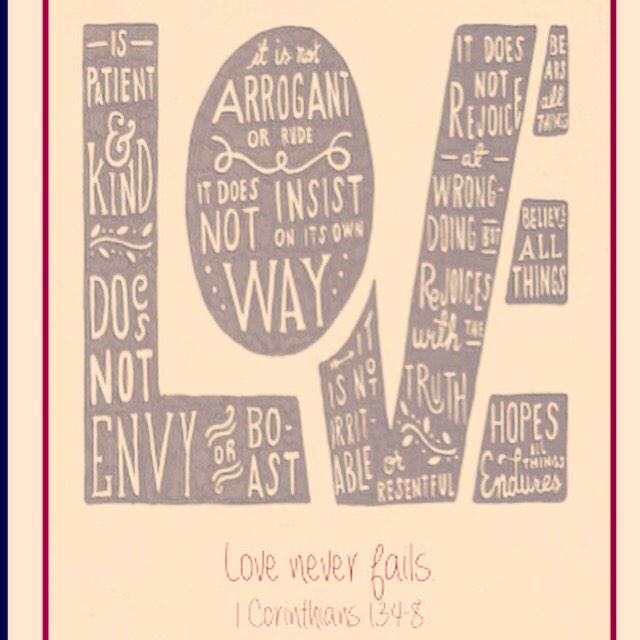 — IS —
PATIENT
&
KIND
DOES
NOT
ENVY
OR
BO-
AST
it is not
ARROGANT
OR RUDE
IT DOES
NOT
INSIST
ON ITS OWN
WAY
IT
IS NOT
IRRIT-
ABLE
or
RESENTFUL
IT DOES
NOT
REJOICE
— at —
WRONG-
DOING BUT
REJOICES
with THE
TRUTH
BE
ARS
all
THINGS
BELIEVES
ALL
THINGS
HOPES
ALL
THINGS
Endures
Love never fails.
1 Corinthians 13:4-8